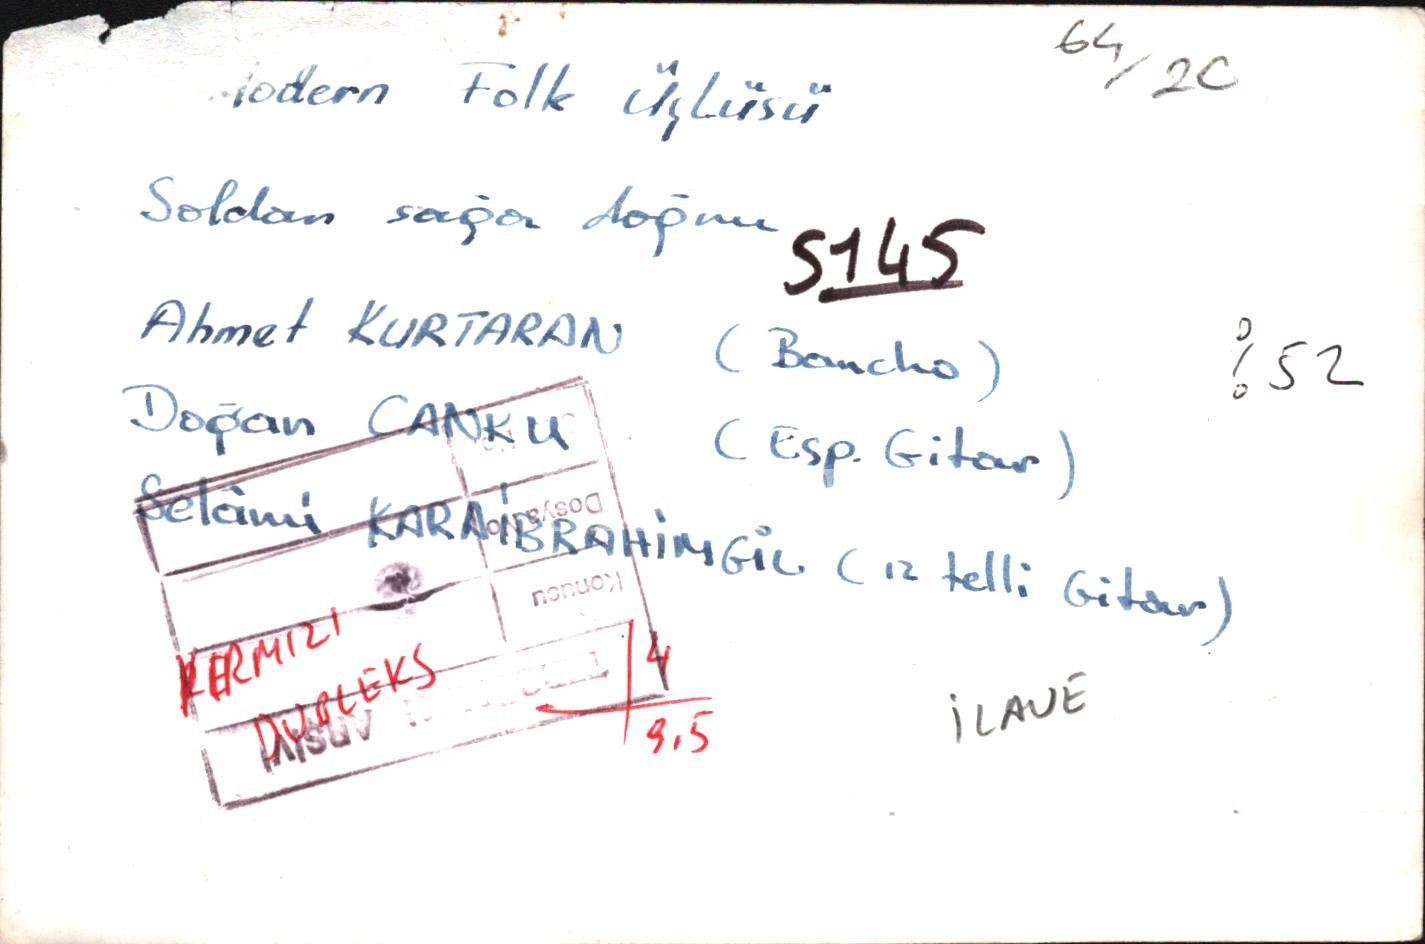 Modern Folk Üçlüsü
64/2C
Soldan sağa doğru
S145
Ahmet KURTARAN (Bancho)
% 52
Doğan CANKU (Esp. Gitar)
Selâmi KARAİBRAHİMGİL (12 telli Gitar)
No.
Dosya No.
Konusu
KERMIZI
DUBLEKS
4
9.5
Arşivi
İLAVE